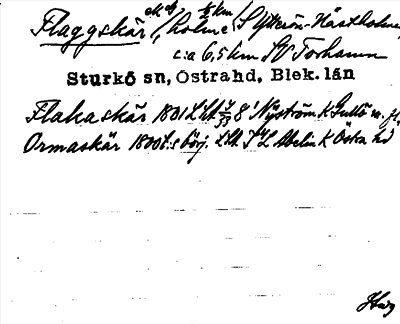 Flaggskär, holme, S Ytterön-Hästholmen
c:a 6,5 km SV Torhamn
Sturkö sn, Östra hd, Blek. län
Flakaskär 1801 Lht 8 Nyström K Gullö m. fl.
Ormaskär 1800t:s börj. Lht I L Abelin K Östra hd